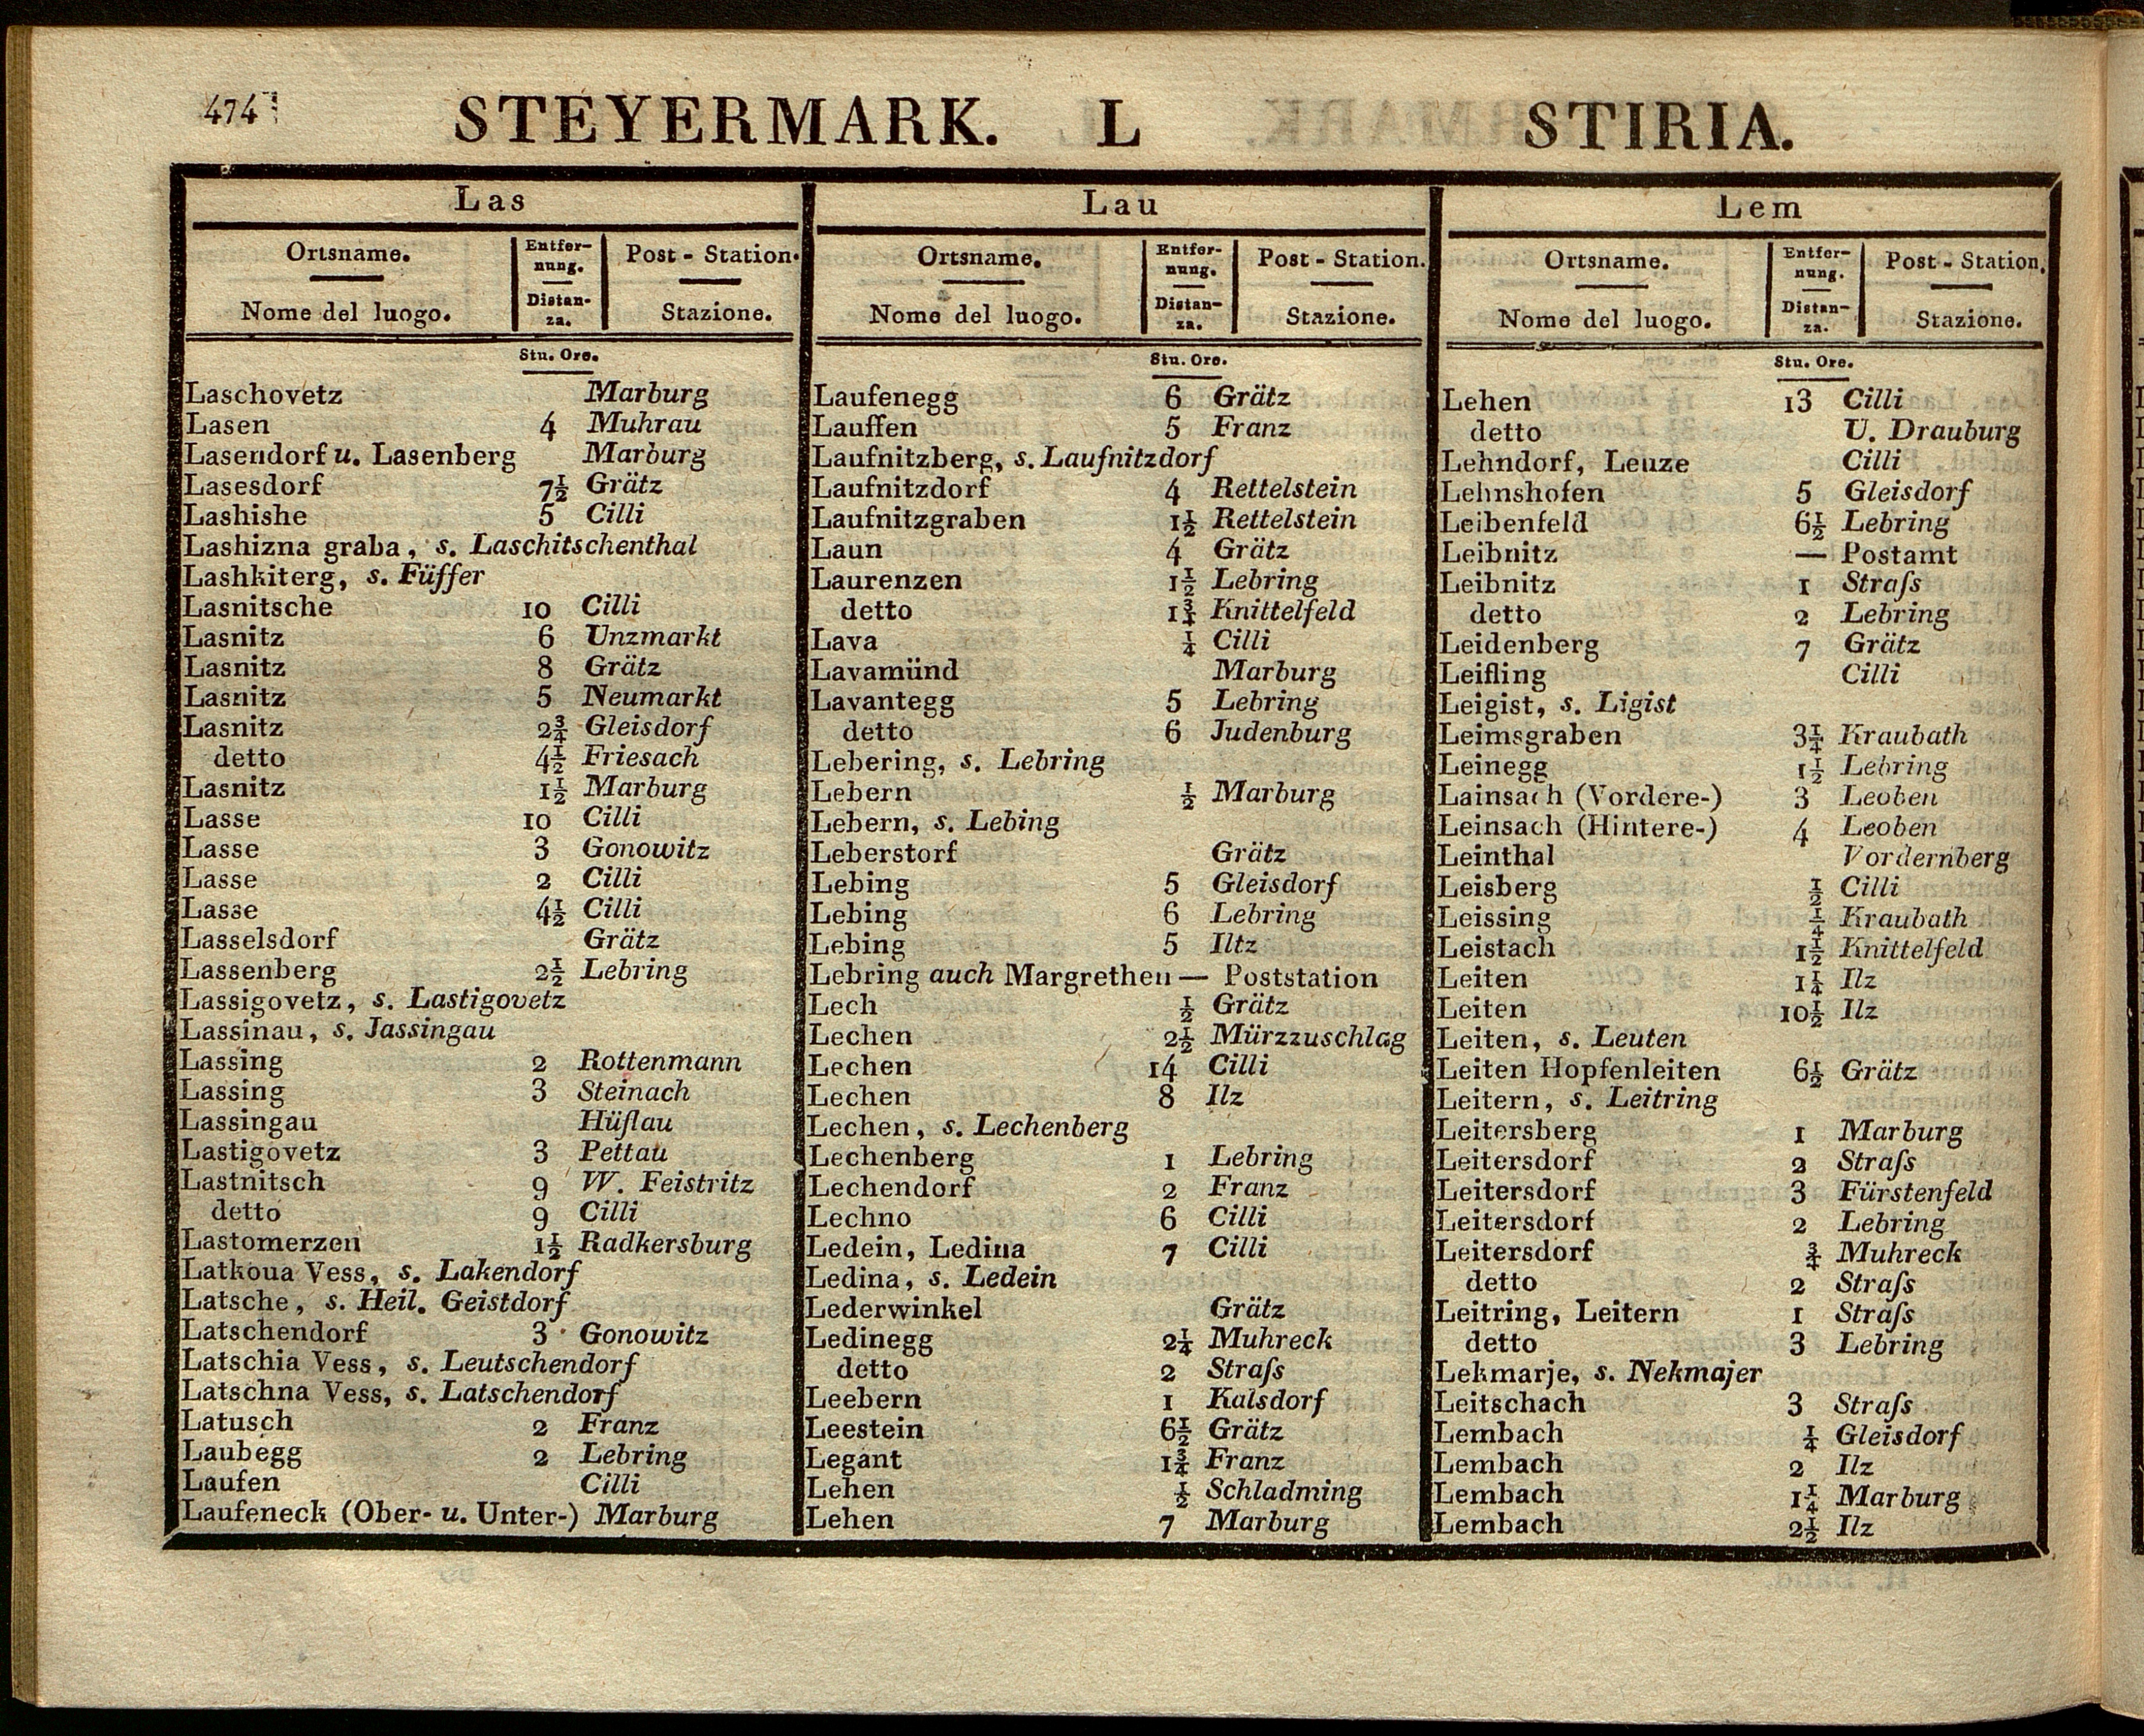 474
STEYERMARK. L STIRIA.
Las
Ortsname. Entfer-nung. Post-Station.
Nome del luogo. Distan-za. Stazione.
Stu. Ore.
Laschovetz Marburg
Lasen 4 Muhrau
Lasendorf u. Lasenberg Marburg
Lasesdorf 7½ Grätz
Lashishe 5 Cilli
Lashizna graba, s. Laschitschenthal
Lashkiterg, s. Füffer
Lasnitsche 10 Cilli
Lasnitz 6 Unzmarkt
Lasnitz 8 Grätz
Lasnitz 5 Neumarkt
Lasnitz 2¾ Gleisdorf
detto 4½ Friesach
Lasnitz 1½ Marburg
Lasse 10 Cilli
Lasse 3 Gonowitz
Lasse 2 Cilli
Lasse 4½ Cilli
Lasselsdorf Grätz
Lassenberg 2½ Lebring
Lassigovetz, s. Lastigovetz
Lassinau, s. Jassingau
Lassing 2 Rottenmann
Lassing 3 Steinach
Lassingau Hüflau
Lastigovetz 3 Pettau
Lastnitsch 9 W. Feistritz
detto 9 Cilli
Lastomerzen 1½ Radkersburg
Latkoua Vess, s. Lakendorf
Latsche, s. Heil. Geistdorf
Latschendorf 3 Gonowitz
Latschia Vess, s. Leutschendorf
Latschna Vess, s. Latschendorf
Latusch 2 Franz
Laubegg 2 Lebring
Laufen Cilli
Laufeneck (Ober- u. Unter-) Marburg
Lau
Ortsname. Entfer-nung. Post-Station.
Nome del luogo. Distan-za. Stazione.
Stu. Ore.
Laufenegg 6 Grätz
Lauffen 5 Franz
Laufnitzberg, s. Laufnitzdorf
Laufnitzdorf 4 Rettelstein
Laufnitzgraben 1½ Rettelstein
Laun 4 Grätz
Laurenzen 1½ Lebring
detto 1¾ Knittelfeld
Lava ¼ Cilli
Lavamünd Marburg
Lavantegg 5 Lebring
detto 6 Judenburg
Lebering, s. Lebring
Lebern ½ Marburg
Lebern, s. Lebing
Leberstorf Grätz
Lebing 5 Gleisdorf
Lebing 6 Lebring
Lebing 5 Iltz
Lebring auch Margrethen — Poststation
Lech ½ Grätz
Lechen 2½ Mürzzuschlag
Lechen 14 Cilli
Lechen 8 Ilz
Lechen, s. Lechenberg
Lechenberg 1 Lebring
Lechendorf 2 Franz
Lechno 6 Cilli
Ledein, Ledina 7 Cilli
Ledina, s. Ledein
Lederwinkel Grätz
Ledinegg 2¼ Muhreck
detto 2 Straſs
Leebern 1 Kalsdorf
Leestein 6½ Grätz
Legant 1¾ Franz
Lehen ½ Schladming
Lehen 7 Marburg
Lem
Ortsname. Entfer-nung. Post-Station.
Nome del luogo. Distan-za. Stazione.
Stu. Ore.
Lehen 13 Cilli
detto U. Drauburg
Lehndorf, Leuze Cilli
Lehnshofen 5 Gleisdorf
Leibenfeld 6½ Lebring
Leibnitz — Postamt
Leibnitz 1 Straſs
detto 2 Lebring
Leidenberg 7 Grätz
Leifling Cilli
Leigist, s. Ligist
Leimsgraben 3¼ Kraubath
Leinegg 1½ Lebring
Lainsach (Vordere-) 3 Leoben
Leinsach (Hintere-) 4 Leoben
Leinthal Vordernberg
Leisberg ½ Cilli
Leissing ¼ Kraubath
Leistach 1½ Knittelfeld
Leiten 1¼ Ilz
Leiten 10½ Ilz
Leiten, s. Leuten
Leiten Hopfenleiten 6½ Grätz
Leitern, s. Leitring
Leitersberg 1 Marburg
Leitersdorf 2 Straſs
Leitersdorf 3 Fürstenfeld
Leitersdorf 2 Lebring
Leitersdorf ¾ Muhreck
detto 2 Straſs
Leitring, Leitern 1 Straſs
detto 3 Lebring
Lekmarje, s. Nekmajer
Leitschach 3 Straſs
Lembach ¼ Gleisdorf
Lembach 2 Ilz
Lembach 1¼ Marburg
Lembach 2½ Ilz